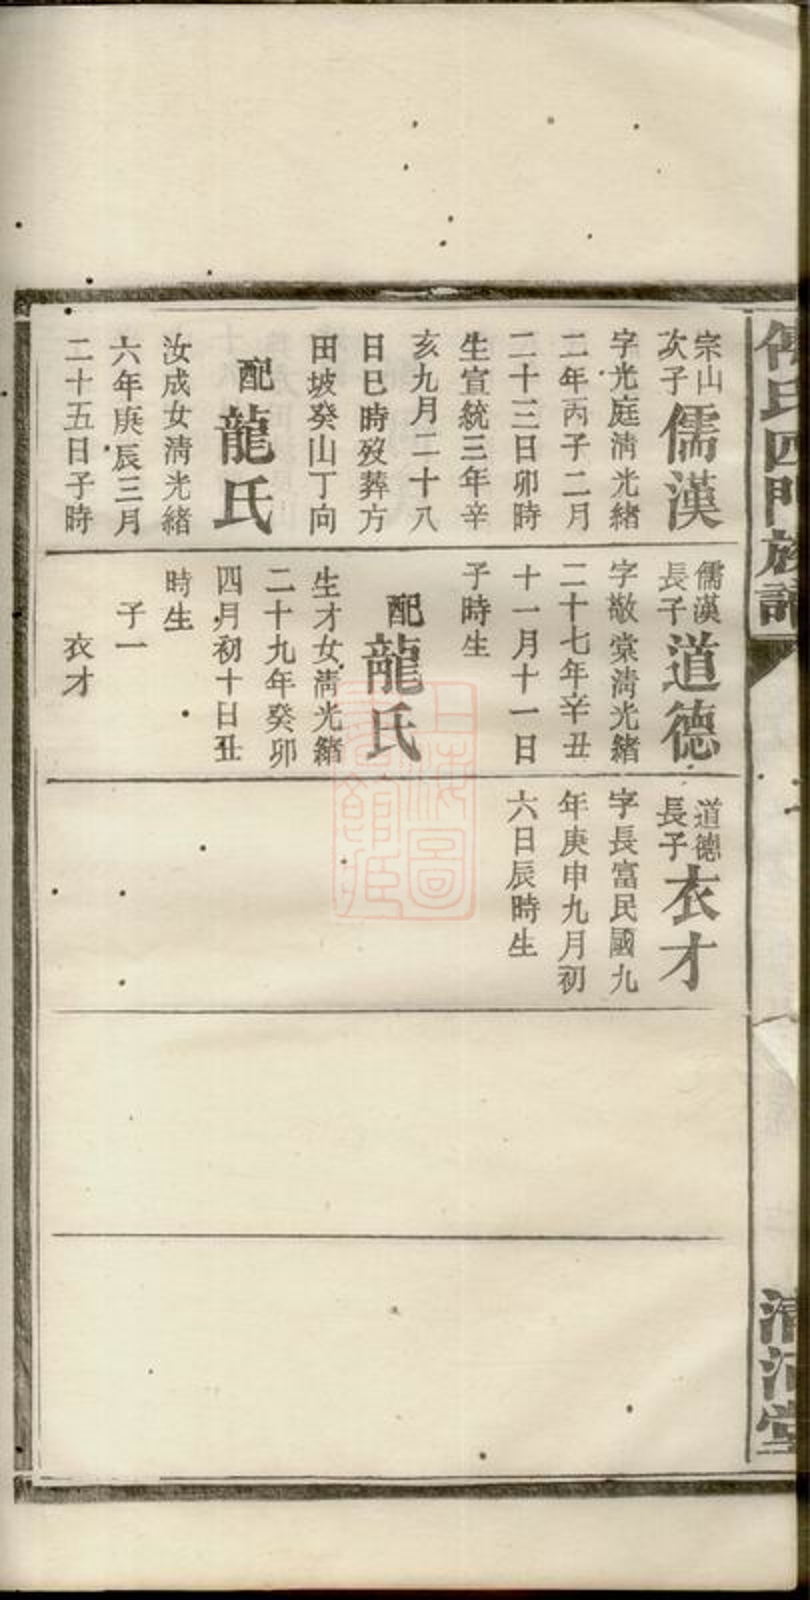 氏四門族譜
清河堂
宗山
次子
儒漢
字光庭清光緒
二年丙子二月
二十三日卯時
生宣統三年辛
亥九月二十八
日巳時歿葬方
田坡癸山丁向
配
龍氏
汝成女清光緒
六年庚辰三月
二十五日子時
儒漢
長子
道德
字敬棠清光緒
二十七年辛丑
十一月十一日
子時生
配
龍氏
生才女清光緒
二十九年癸卯
四月初十日丑
時生
子一
衣才
道德
長子
衣才
字長富民國九
年庚申九月初
六日辰時生
上海圖
書館藏